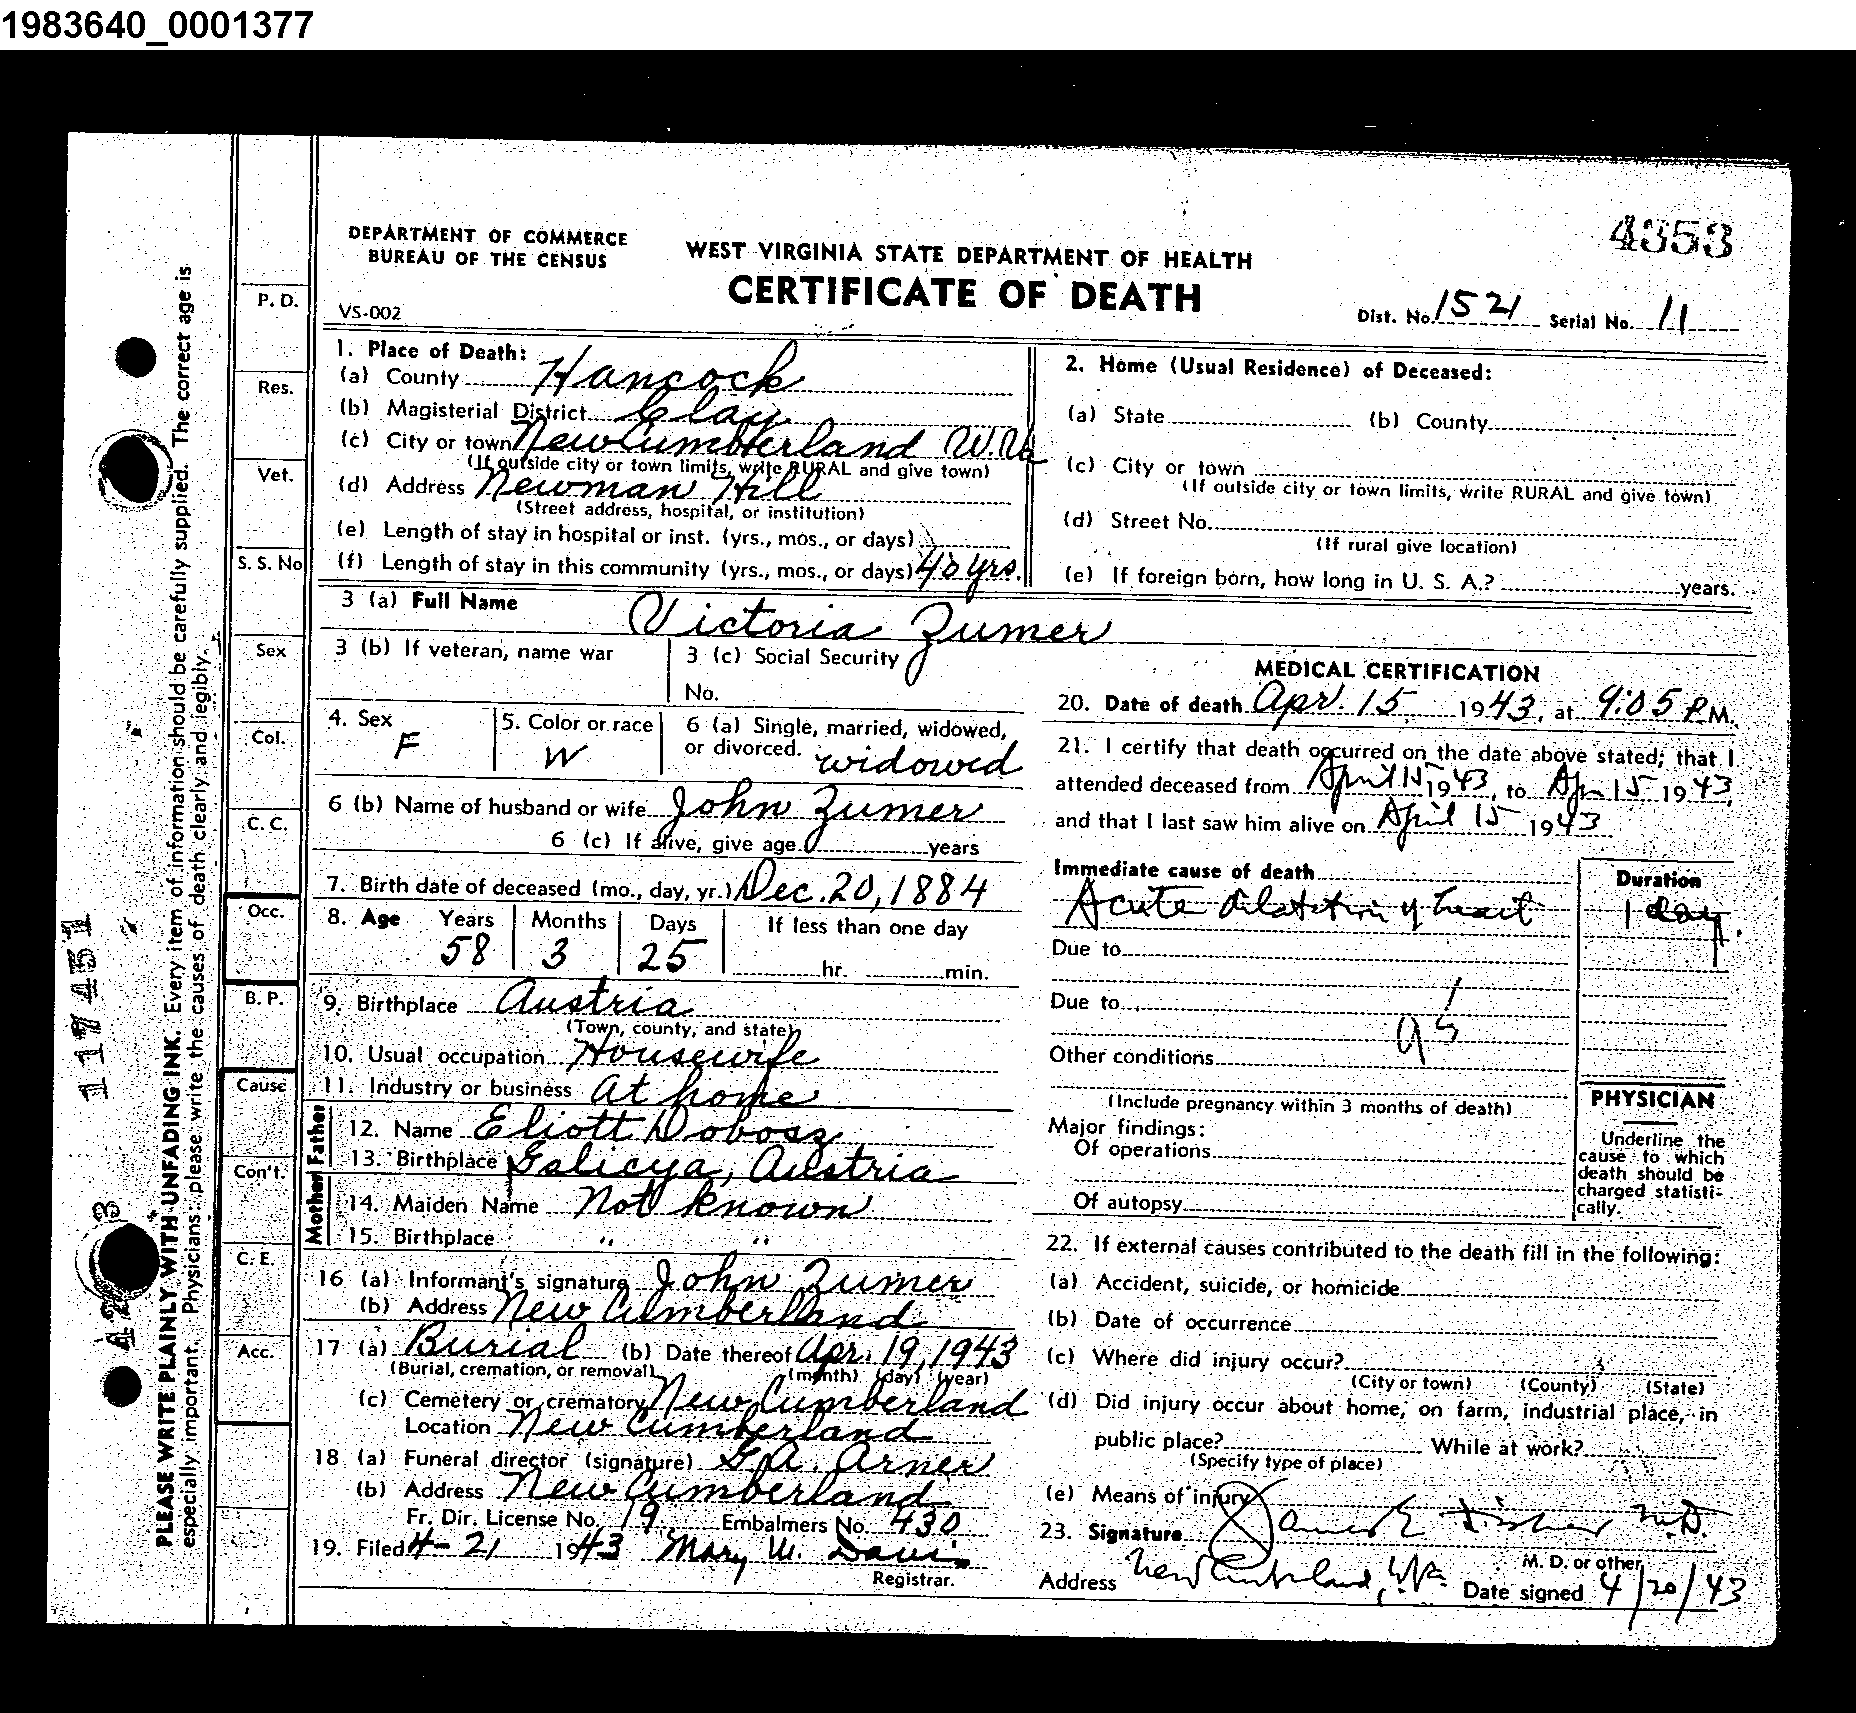 1983640_0001377
4353
DEPARTMENT OF COMMERCE
BUREAU OF THE CENSUS
WEST VIRGINIA STATE DEPARTMENT OF HEALTH
CERTIFICATE OF DEATH
VS-002
Dist. No. 1521 Serial No. 11
1. Place of Death:
(a) County Hancock
(b) Magisterial District Clay
(c) City or town New Cumberland W.Va
(If outside city or town limits, write RURAL and give town)
(d) Address Newman Hill
(Street address, hospital, or institution)
(e) Length of stay in hospital or inst. (yrs., mos., or days)
(f) Length of stay in this community (yrs., mos., or days) 40 yrs.
2. Home (Usual Residence) of Deceased:
(a) State (b) County
(c) City or town
(If outside city or town limits, write RURAL and give town)
(d) Street No.
(If rural give location)
(e) If foreign born, how long in U. S. A.? years.
3 (a) Full Name Victoria Zumer
3 (b) If veteran, name war
3 (c) Social Security
No.
4. Sex
F
5. Color or race
W
6 (a) Single, married, widowed,
or divorced. widowed
6 (b) Name of husband or wife John Zumer
6 (c) If alive, give age years
7. Birth date of deceased (mo., day, yr.) Dec. 20, 1884
8. Age Years Months Days If less than one day
58 3 25 hr. min.
9. Birthplace Austria
(Town, county, and state)
10. Usual occupation Housewife
11. Industry or business At home
Father
12. Name Eliott Dobosz
13. Birthplace Galicya, Austria
Mother
14. Maiden Name Not known
15. Birthplace " "
16 (a) Informant's signature John Zumer
(b) Address New Cumberland
17 (a) Burial (b) Date thereof Apr. 19, 1943
(Burial, cremation, or removal) (month) (day) (year)
(c) Cemetery or crematory New Cumberland
Location New Cumberland
18 (a) Funeral director (signature) G.A. Arner
(b) Address New Cumberland
Fr. Dir. License No. 19 Embalmers No. 430
19. Filed 4-21 1943 Mary W. Davis
Registrar.
MEDICAL CERTIFICATION
20. Date of death Apr. 15 1943, at 9:05 P.M.
21. I certify that death occurred on the date above stated; that I
attended deceased from April 15 1943, to Apr 15 1943,
and that I last saw him alive on April 15 1943
Immediate cause of death
Acute dilatation of heart
Duration
1 day.
Due to
Due to
Other conditions
(Include pregnancy within 3 months of death)
Major findings:
Of operations
Of autopsy
PHYSICIAN
Underline the
cause to which
death should be
charged statisti-
cally.
22. If external causes contributed to the death fill in the following:
(a) Accident, suicide, or homicide
(b) Date of occurrence
(c) Where did injury occur?
(City or town) (County) (State)
(d) Did injury occur about home, on farm, industrial place, in
public place? While at work?
(Specify type of place)
(e) Means of injury
23. Signature James E Fisher M.D.
M. D. or other
Address New Cumberland, W.Va. Date signed 4/20/43
P. D.
Res.
Vet.
S. S. No
Sex
Col.
C. C.
Occ.
B. P.
Cause
Con't.
C. E.
Acc.
PLEASE WRITE PLAINLY WITH UNFADING INK. Every item of information should be carefully supplied. The correct age is
especially important. Physicians: please write the causes of death clearly and legibly.
117451